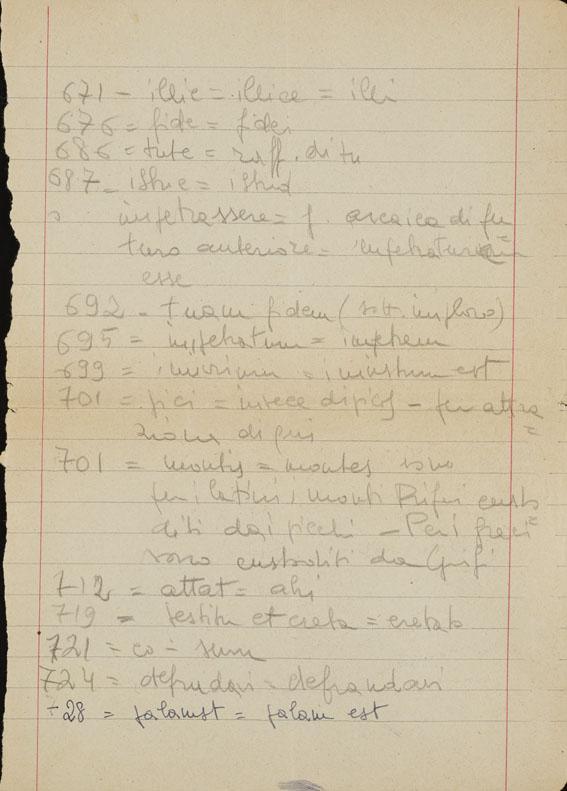 671 - illic = illice = illi
676 = fide = fidei
686 = tute = raff. di tu
687 - istuc = istud
impetrassere = f. arcaica di fu
turo anteriore = impetraturum
esse
692 - tuam fidem (sott. imploro)
695 = impetratum = impetrem
699 = iniurium = iniustum est
701 = pici = invece di picos - per attra=
zione di qui
701 = montis = montes sono
per i latini i monti Rifei custo
diti dai picchi - Per i greci=
sono custoditi da Grifi
712 = attat = ahi
719 = et creta = cretata
721 = co - sum
724 = defrudari = defraudari
728 = palamst = palam est